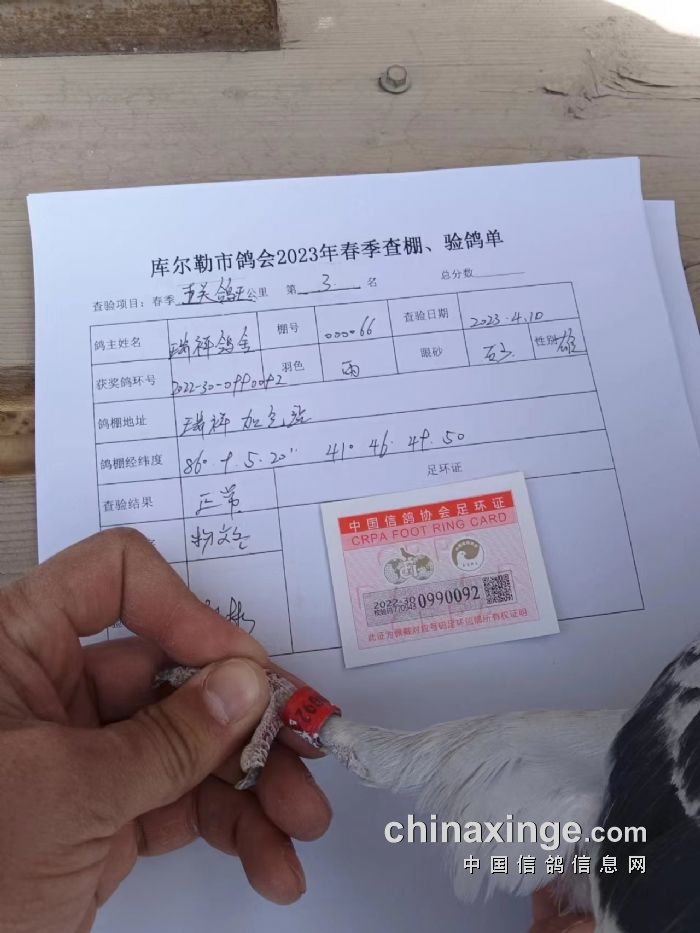 库尔勒市鸽会2023年春季查棚、验鸽单
查验项目：春季 五关鸽王 公里 第 3 名 总分数
鸽主姓名 瑞祥鸽舍 棚号 000066 查验日期 2023.4.10
获奖鸽环号 2022-30-0990092 羽色 雨 眼砂 性别 雄
鸽棚地址 瑞祥加气站
鸽棚经纬度 86° 9.5.20" 41° 46.49.50
查验结果 正常 足环证
中国信鸽协会足环证
CRPA FOOT RING CARD
2022-30 0990092
此证为佩戴对应号码足环信鸽所有权证明
chinaxinge.com
中国信鸽信息网